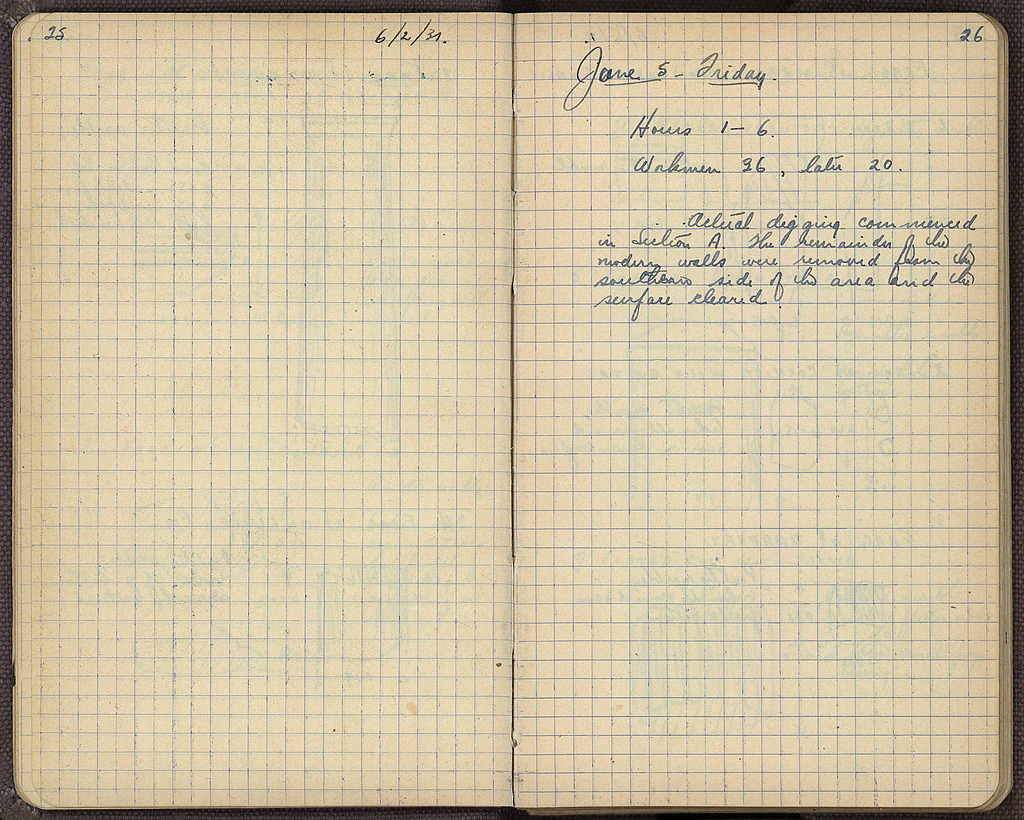 25
6/2/31.
26
June 5 - Friday.
Hours 1 - 6.
Workmen 36, later 20.
Actual digging commenced
in Section A. The remainder of the
modern walls were removed from the
southern side of the area and the
surface cleared.